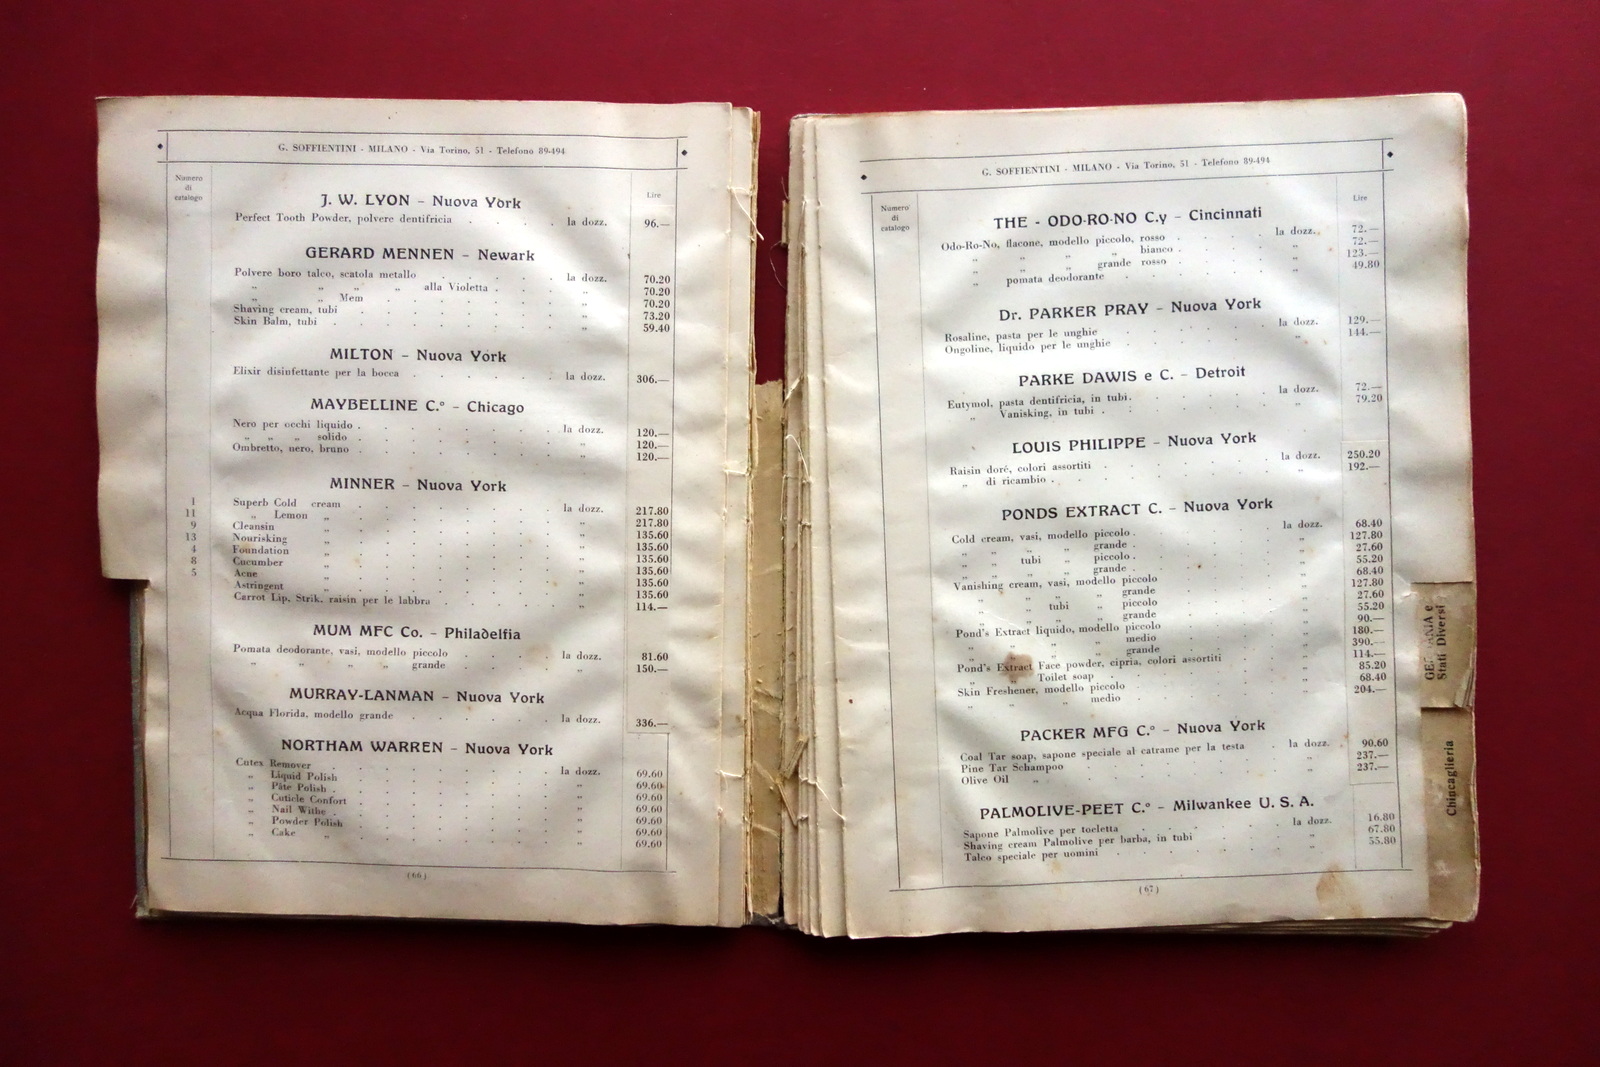 G. SOFFIENTINI - MILANO - Via Torino, 51 - Telefono 89-494
Numero di catalogo
Lire
J. W. LYON – Nuova York
Perfect Tooth Powder, polvere dentifricia . . . la dozz. 96.—
GERARD MENNEN – Newark
Polvere boro talco, scatola metallo . . . la dozz. 70.20
„ „ „ „ alla Violetta . . . „ 70.20
„ „ Mem . . . „ 70.20
Shaving cream, tubi . . . „ 73.20
Skin Balm, tubi . . . „ 59.40
MILTON – Nuova York
Elixir disinfettante per la bocca . . . la dozz. 306.—
MAYBELLINE C.° – Chicago
Nero per occhi liquido . . . la dozz. 120.—
„ „ „ solido . . . „ 120.—
Ombretto, nero, bruno . . . „ 120.—
MINNER – Nuova York
1 Superb Cold cream . . . la dozz. 217.80
11 „ Lemon „ . . . „ 217.80
9 Cleansin „ . . . „ 135.60
13 Nourisking „ . . . „ 135.60
4 Foundation „ . . . „ 135.60
8 Cucumber „ . . . „ 135.60
5 Acne „ . . . „ 135.60
Astringent „ . . . „ 135.60
Carrot Lip. Strik, raisin per le labbra . . . „ 114.—
MUM MFC Co. – Philadelfia
Pomata deodorante, vasi, modello piccolo . . . la dozz. 81.60
„ „ „ „ grande . . . „ 150.—
MURRAY-LANMAN – Nuova York
Acqua Florida, modello grande . . . la dozz. 336.—
NORTHAM WARREN – Nuova York
Cutex Remover . . . la dozz. 69.60
„ Liquid Polish . . . „ 69.60
„ Pâte Polish . . . „ 69.60
„ Cuticle Confort . . . „ 69.60
„ Nail Withe . . . „ 69.60
„ Powder Polish . . . „ 69.60
„ Cake „ . . . „ 69.60
(66)
G. SOFFIENTINI - MILANO - Via Torino, 51 - Telefono 89-494
Numero di catalogo
Lire
THE - ODO-RO-NO C.y – Cincinnati
Odo-Ro-No, flacone, modello piccolo, rosso . . . la dozz. 72.—
„ „ „ „ bianco . . . „ 72.—
„ „ „ grande rosso . . . „ 123.—
„ pomata deodorante . . . „ 49.80
Dr. PARKER PRAY – Nuova York
Rosaline, pasta per le unghie . . . la dozz. 129.—
Ongoline, liquido per le unghie . . . „ 144.—
PARKE DAWIS e C. – Detroit
Eutymol, pasta dentifricia, in tubi . . . la dozz. 72.—
„ Vanisking, in tubi . . . „ 79.20
LOUIS PHILIPPE – Nuova York
Raisin doré, colori assortiti . . . la dozz. 250.20
„ di ricambio . . . „ 192.—
PONDS EXTRACT C. – Nuova York
Cold cream, vasi, modello piccolo . . . la dozz. 68.40
„ „ „ „ grande . . . „ 127.80
„ „ tubi „ piccolo . . . „ 27.60
„ „ „ „ grande . . . „ 55.20
Vanishing cream, vasi, modello piccolo . . . „ 68.40
„ „ „ „ grande . . . „ 127.80
„ „ tubi „ piccolo . . . „ 27.60
„ „ „ „ grande . . . „ 55.20
Pond's Extract liquido, modello piccolo . . . „ 90.—
„ „ „ „ medio . . . „ 180.—
„ „ „ „ grande . . . „ 390.—
Pond's Extract Face powder, cipria, colori assortiti . . . „ 114.—
„ „ Toilet soap . . . „ 85.20
Skin Freshener, modello piccolo . . . „ 68.40
„ „ „ medio . . . „ 204.—
PACKER MFG C.° – Nuova York
Coal Tar soap, sapone speciale al catrame per la testa . la dozz. 90.60
Pine Tar Schampoo . . . „ 237.—
Olive Oil „ . . . „ 237.—
PALMOLIVE-PEET C.° – Milwankee U. S. A.
Sapone Palmolive per toeletta . . . la dozz. 16.80
Shaving cream Palmolive per barba, in tubi . . . „ 67.80
Talco speciale per uomini . . . „ 55.80
(67)
Stati Diversi
Chincaglieria